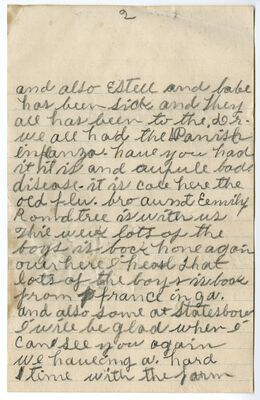 2
and also Estell and babe
has been sick and they
all has been to the, Dr.
we all had the Spanish
enfanza. have you had
it it is and aufule bad
disease. it is cale here the
old flu. bro aunt Emily
Roundtree is with us
this week lots of the
boys is bock hone again
over here I heal that
lots of the boys is bock
from france in ga.
and also some at Statesboro
I wile be glad when I
can see you again
we haueing a. hard
time with the farm